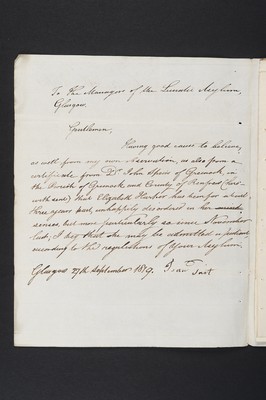 To the Managers of the Lunatic Asylum,
Glasgow.
Gentlemen,
Having good cause to believe,
as well from my own observation, as also from a
certificate from Dr John Speirs of Greenock, in
the Parish of Greenock and County of Renfrew (here-
with sent) that Elizabeth has been for about
three years past, unhappily disordered in her
senses, but more particularly so since November
last; I beg that she may be admitted a patient
according to the regulations of Your Asylum.
Glasgow 27th September 1819.